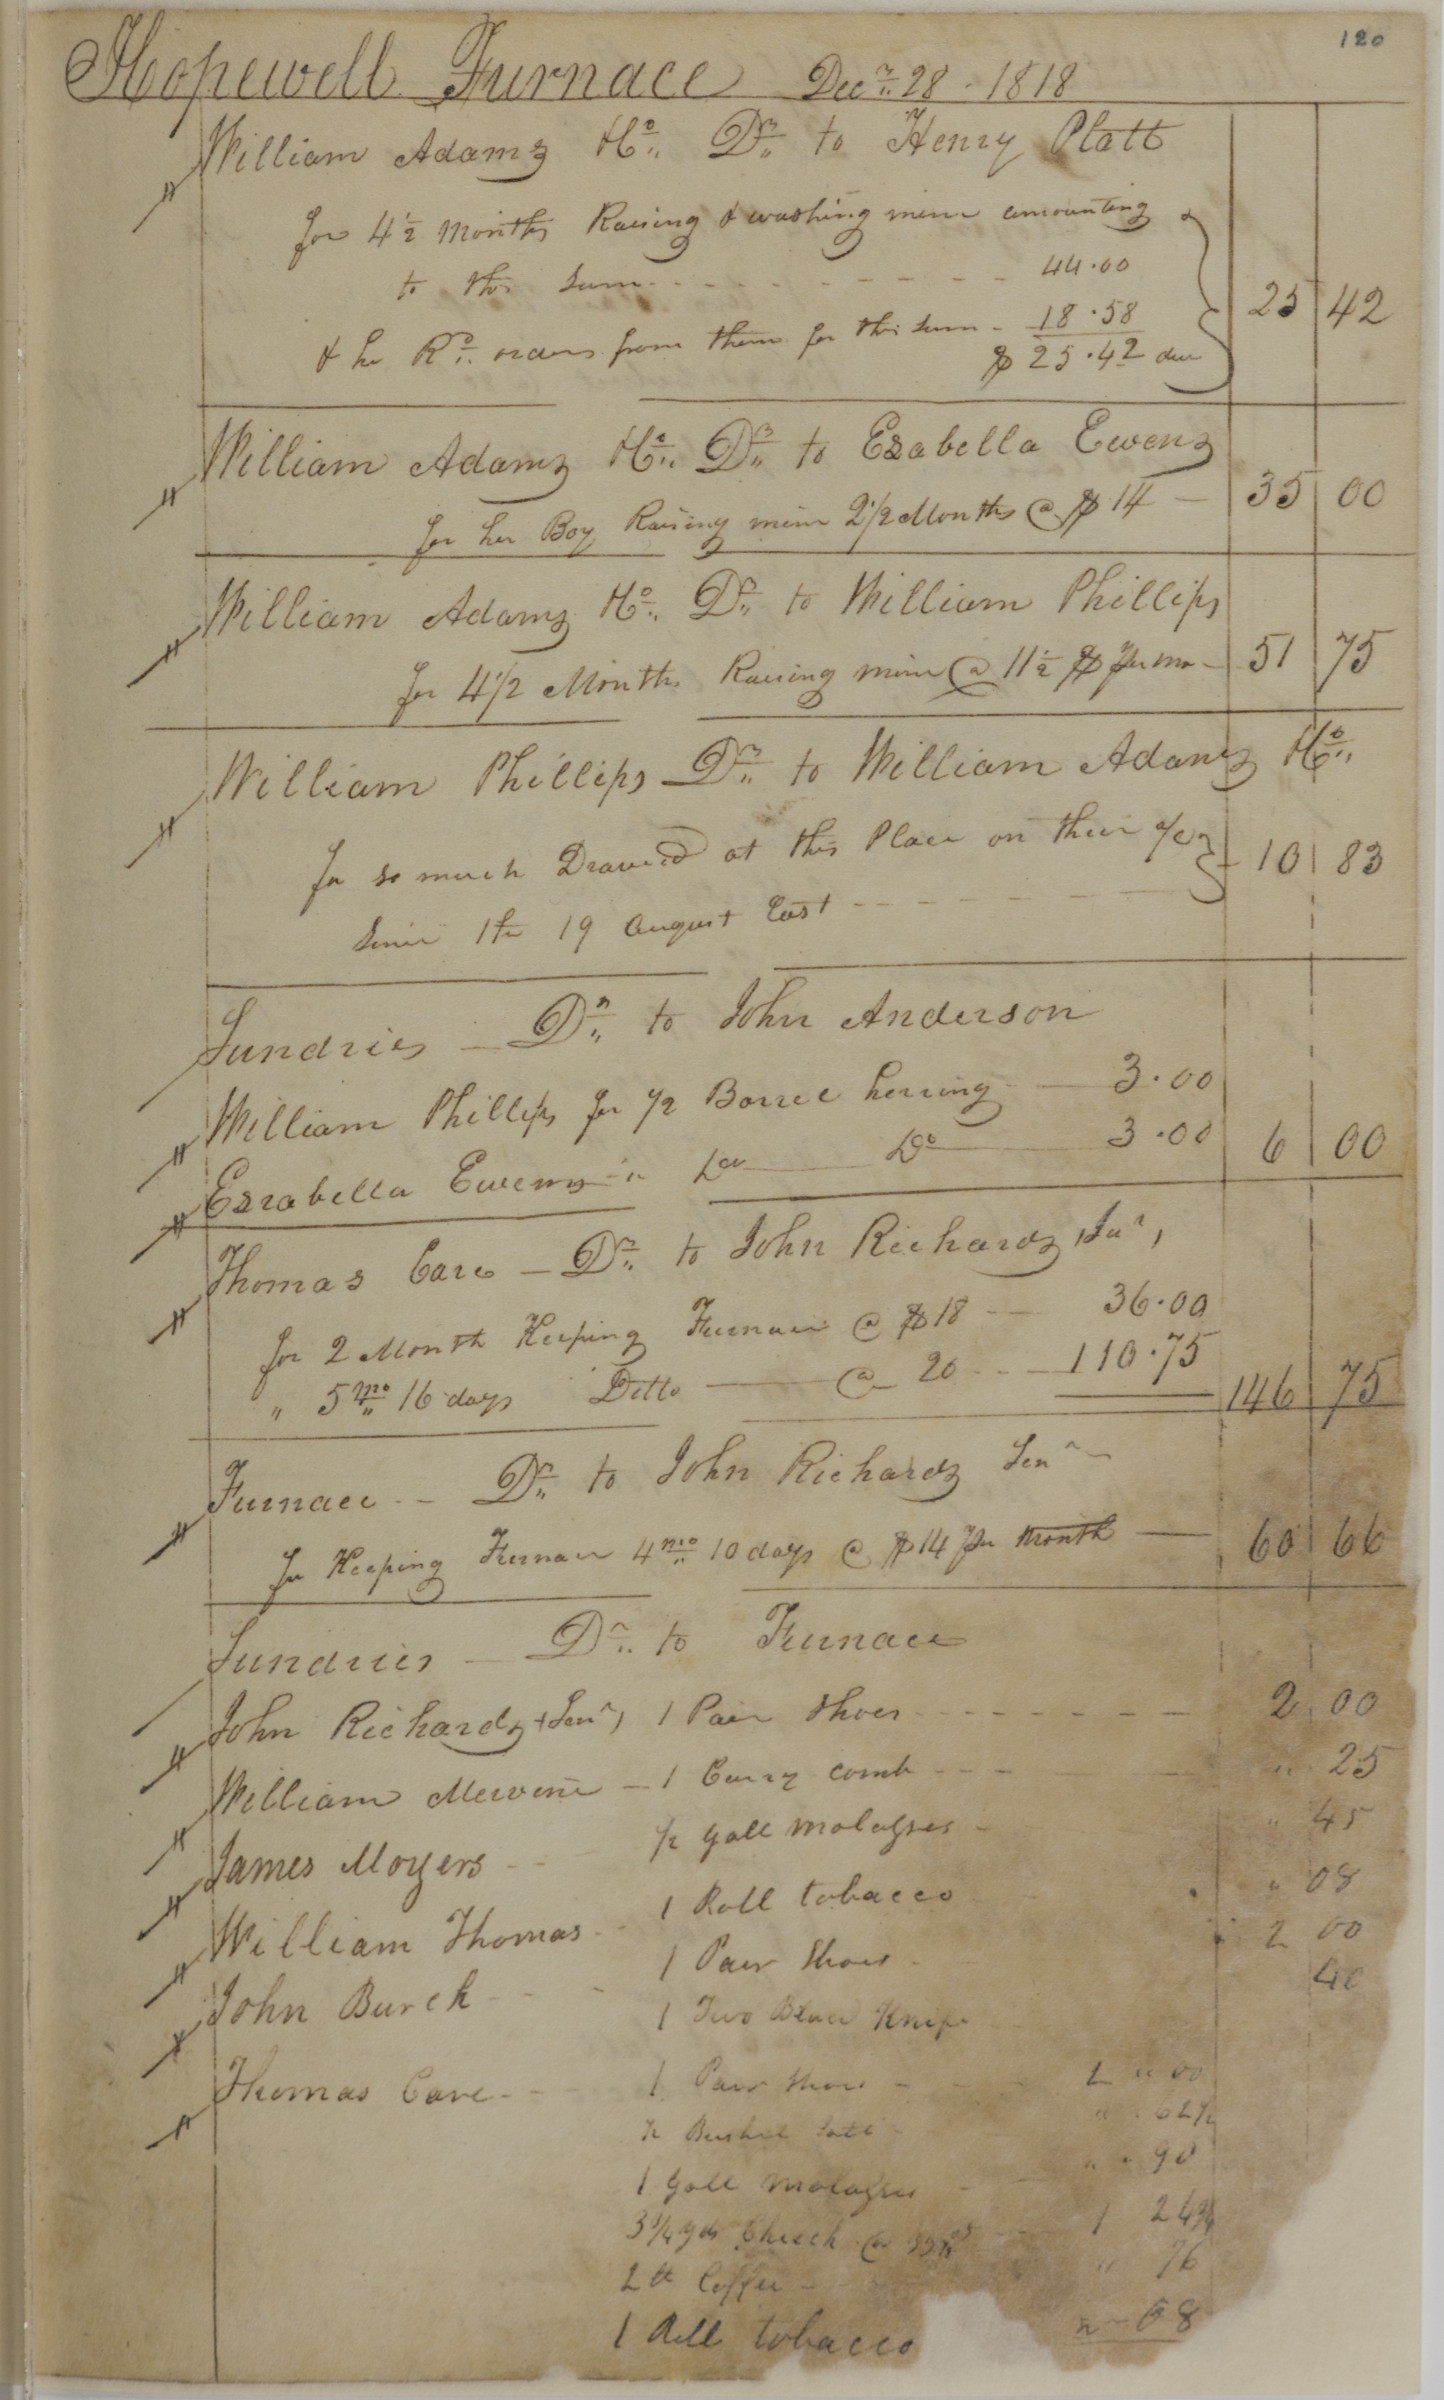 120
Hopewell Furnace Decr 28 - 1818
William Adams & Co. Dr to Henry Platt
for 4½ Months Raising & washing mine amounting
to this Sum - - - - - - - 44.00
& he Rd. orders from them for this Sum - 18.58
$ 25.42 due 25 42
William Adams & Co. Dr to Esabella Ewens
for her Boy Raising mine 2½ Months @ $ 14 — 35 00
William Adams & Co. Dr to William Phillips
for 4½ Months Raising mine @ 11½ $ per mo - 51 75
William Phillips Dr to William Adams & Co.
for so much Drawed at this Place on their a/c 10 83
Since the 19 August Last - - - - - -
Sundries — Dr to John Anderson
William Phillips for ½ Barrel herring — 3.00
Esrabella Ewens " Do — Do — 3.00 6 00
Thomas Care — Dr to John Richards, Jur,
for 2 Month Keeping Furnace @ $ 18 — 36.00
" 5 mo 16 days Ditto — @ 20 - - 110.75 146 75
Furnace - - Dr to John Richards Senr
for Keeping Furnace 4 mo 10 days @ $ 14 per Month — 60 66
Sundries — Dr to Furnace
John Richards, Senr, 1 Pair Shoes - - - - - - 2 00
William Mervine - 1 Curry comb - - - " 25
James Moyers - - ½ gall molasses - " 45
William Thomas - 1 Roll tobacco " 08
John Burch - - - 1 Pair Shoes - 2 00
1 Two Blade Knife 40
Thomas Care - - 1 Pair Shoes - - - 2 " 00
½ Bushel Salt - " . 62½
1 gall molasses - - " " 90
3¾ yds Check @ 1 24¾
2 lb Coffee - " 76
1 Roll tobacco " - 08